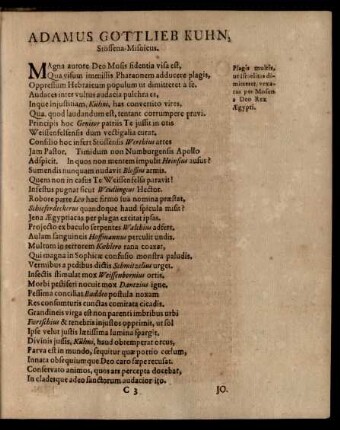 ADAMUS GOTTLIEB KUHN,
Stüssena-Misnicus.
Magna aurore Deo Mosis fidentia visa est,
Qua visum immissis Pharaonem adducere plagis,
Oppressum Hebraicum populum ut dimitteret a se.
Audaces inter vultus audacia pulchra es,
Inque injustitiam, Kühni, has convertito vires,
Qua, quod laudandum est, tentant corrumpere pravi.
Principis hoc Genitor patriis Te jussit in otiis
Weissenfelsensis dum vectigalia curat,
Consilio hoc insert Stüssensis Werthius artes
Jam Pastor. Timidum non Numburgensis Apollo
Adspicit. In quos non mentem impulit Heinsius ausus?
Sumendis nunquam nudavit Blessius armis.
Quem non in casus Te Weissenfelsis paravit?
Infestus pugnat sicut Weidlingus Hector.
Robore parte Leo hac firmo sua nomina præstat,
Schieferdeckerus quandoque haud spicula misit?
Jena Ægyptiacas per plagas excitat ipsas.
Projecto ex baculo serpentes Walchius adfert,
Aulam sanguineis Hoffmannus perculit undis.
Multum in terrorem Kœhlero rana coaxat,
Qui magna in Sophicæ confusio monstra paludis.
Vermibus a pedibus dictis Schmitzelius urget.
Insectis stimulat mox Weissenbornius ortis,
Morbi pestiferi nocuit mox Danzius igne.
Pessima concilias Buddeo postula noxam
Res consumturis cunctas comitata cicadis.
Grandineis virga est non parenti imbribus urbi
Fortschius & tenebris injustos opprimit, ut sol
Ipse velut justis lætissima lumina spargit.
Divinis jussis, Kühni, haud obtemperat orcus,
Parva est in mundo, sequitur quæ portio cœlum,
Innata obsequiumque Deo caro sæpe recusat.
Conservato animos, quos ars percepta docebat,
In cladesque adeo sanctorum audacior ito.
Plagis multis,
ut Israëlitas di-
mitteret, vexa-
tus per Mosen
a Deo Rex
Ægypti.
C 3
JO.